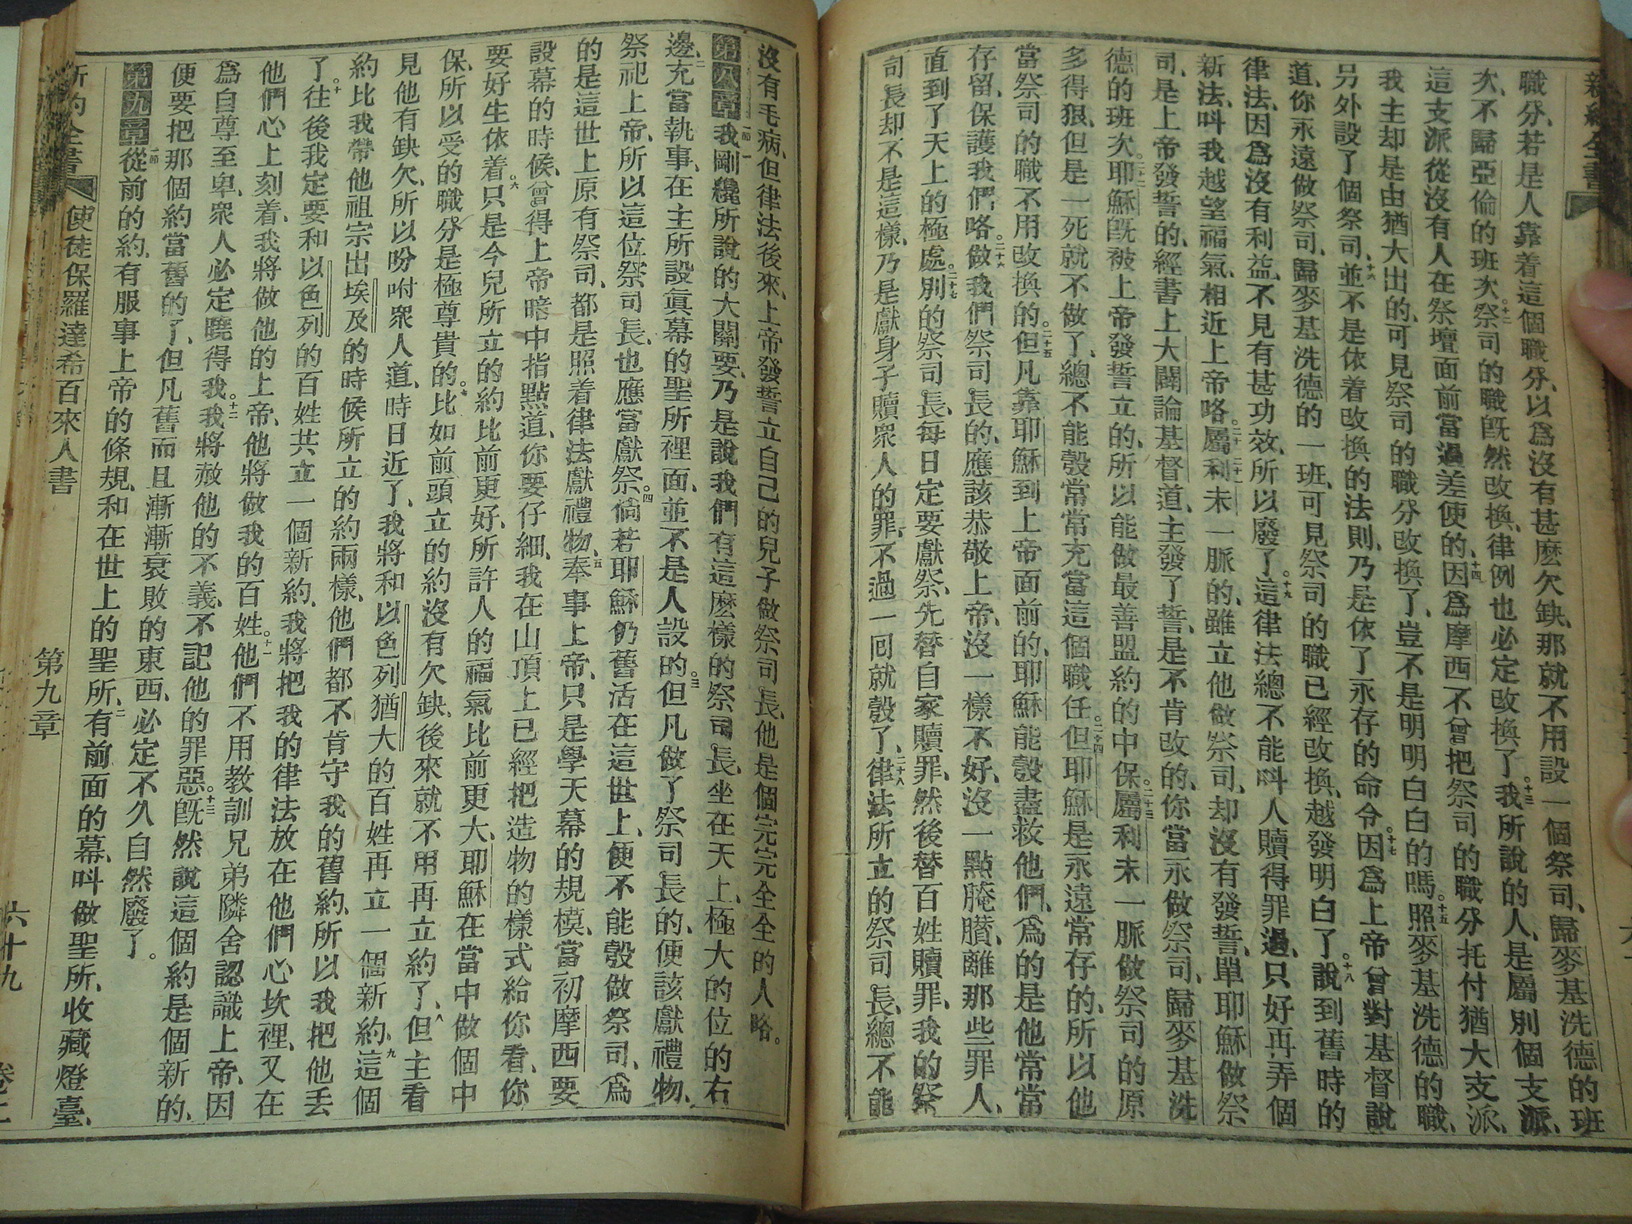 新約全書
職分、若是人靠着這個職分、以爲沒有甚麽欠缺、那就不用設一個祭司、歸麥基洗德的班
次、不歸亞倫的班次。十二祭司的職既然改換、律例也必定改換了。十三我所說的人、是屬別個支派、
這支派從沒有人在祭壇面前當過差使的、十四因爲摩西不曾把祭司的職分托付猶大支派、
我主却是由猶大出的、可見祭司的職分改換了、豈不是明明白白的嗎。十五照麥基洗德的職、
另外設了個祭司、十六並不是依着改換的法則、乃是依了永存的命令。十七因爲上帝曾對基督說
道、你永遠做祭司、歸麥基洗德的一班、可見祭司的職已經改換、越發明白了。十八說到舊時的
律法、因爲沒有利益、不見有甚功效、所以廢了。十九這律法總不能呌人贖得罪過、只好再弄個
新法、呌我越望福氣、相近上帝略。二十二十一屬利未一脈的、雖立他做祭司、却沒有發誓、單耶穌做祭
司、是上帝發誓的、經書上大闢論基督道、主發了誓、是不肯改的、你當永做祭司、歸麥基洗
德的班次。二十二耶穌既被上帝發誓立的、所以能做最善盟約的中保。二十三屬利未一脈做祭司的原
多得狠、但是一死就不做了、總不能彀常常充當這個職任。二十四但耶穌是永遠常存的、所以他
當祭司的職、不用改換的。二十五但凡靠耶穌到上帝面前的、耶穌能彀盡救他們、爲的是他常常
存留、保護我們略。二十六做我們祭司長的、應該恭敬上帝、沒一樣不好、沒一點腌臢、離那些罪人、
直到了天上的極處。二十七別的祭司長、每日定要獻祭、先替自家贖罪、然後替百姓贖罪、我的祭
司長却不是這樣、乃是獻身子贖衆人的罪、不過一回就彀了。二十八律法所立的祭司長、總不能
沒有毛病、但律法後來、上帝發誓立自己的兒子做祭司長、他是個完完全全的人略。
第八章一節一我剛纔所說的大關要、乃是說我們有這麽樣的祭司長、坐在天上、極大的位的右
邊、二充當執事、在主所設眞幕的聖所裡面、並不是人設的。三但凡做了祭司長的、便該獻禮物、
祭祀上帝、所以這位祭司長、也應當獻祭。四倘若耶穌仍舊活在這世上、便不能彀做祭司、爲
的是這世上原有祭司、都是照着律法獻禮物、五奉事上帝、只是學天幕的規模、當初摩西要
設幕的時候、曾得上帝暗中指點道、你要仔細、我在山頂上已經把造物的樣式給你看、你
要好生依着。六只是今兒所立的約比前更好、所許人的福氣比前更大、耶穌在當中做個中
保、所以受的職分是極尊貴的。七比如前頭立的約沒有欠缺、後來就不用再立約了、八但主看
見他有缺欠、所以吩咐衆人道、時日近了、我將和以色列猶大的百姓再立一個新約、九這個
約比我帶他祖宗出埃及的時候所立的約兩樣、他們都不肯守我的舊約、所以我把他丟
了。十往後我定要和以色列的百姓共立一個新約、我將把我的律法放在他們心坎裡、又在
他們心上刻着、我將做他的上帝、他將做我的百姓。十一他們不用教訓兄弟隣舍認識上帝、因
爲自尊至卑、衆人必定曉得我。十二我將赦他的不義、不記他的罪惡。十三既然說這個約是個新的、
便要把那個約當舊的了、但凡舊而且漸漸衰敗的東西、必定不久自然廢了。
第九章一節從前的約、有服事上帝的條規、和在世上的聖所、二有前面的幕、呌做聖所、收藏燈臺、
新約全書 使徒保羅達希百來人書 第九章 六十九